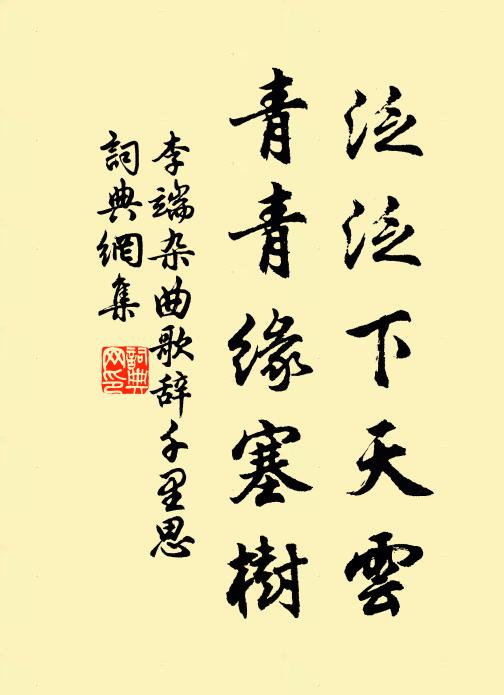 泛泛下天雲
青青緣塞樹
李端杂曲歌辞千里思
詞典網集
詞典網印